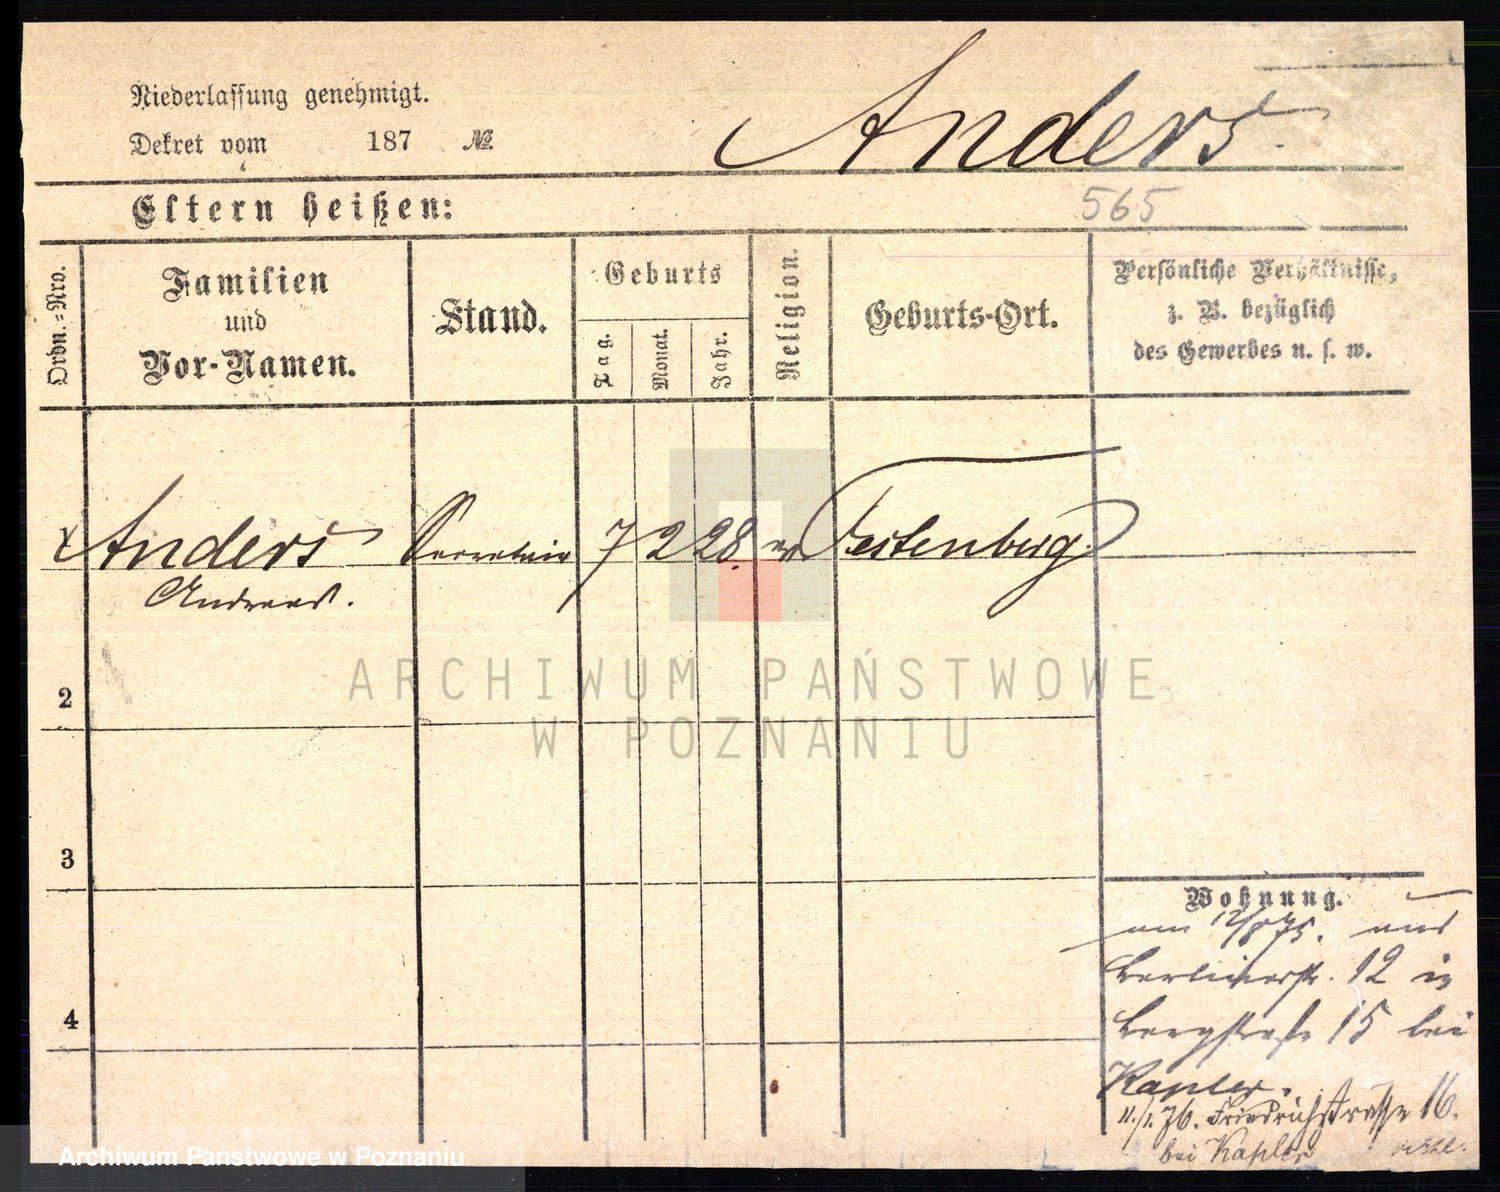 Niederlassung genehmigt.
Dekret vom 187 №.
Anders.
Eltern heißen:
565
Ordn.-Nro.
Familien
und
Vor-Namen.
Stand.
Geburts
Tag.
Monat.
Jahr.
Religion.
Geburts-Ort.
Persönliche Verhältnisse,
z. B. bezüglich
des Gewerbes u. s. w.
1 Anders Secretair 7 2 28. ev Festenberg.
Andreas.
2
3
4
ARCHIWUM PAŃSTWOWE
W POZNANIU
Wohnung.
am 12/8 75. aus
Berlinerstr. 12 in
Bergstraße 15 bei
Kapler.
11./1. 76. Friedrichstrasse 16.
bei Kapler
Archiwum Państwowe w Poznaniu